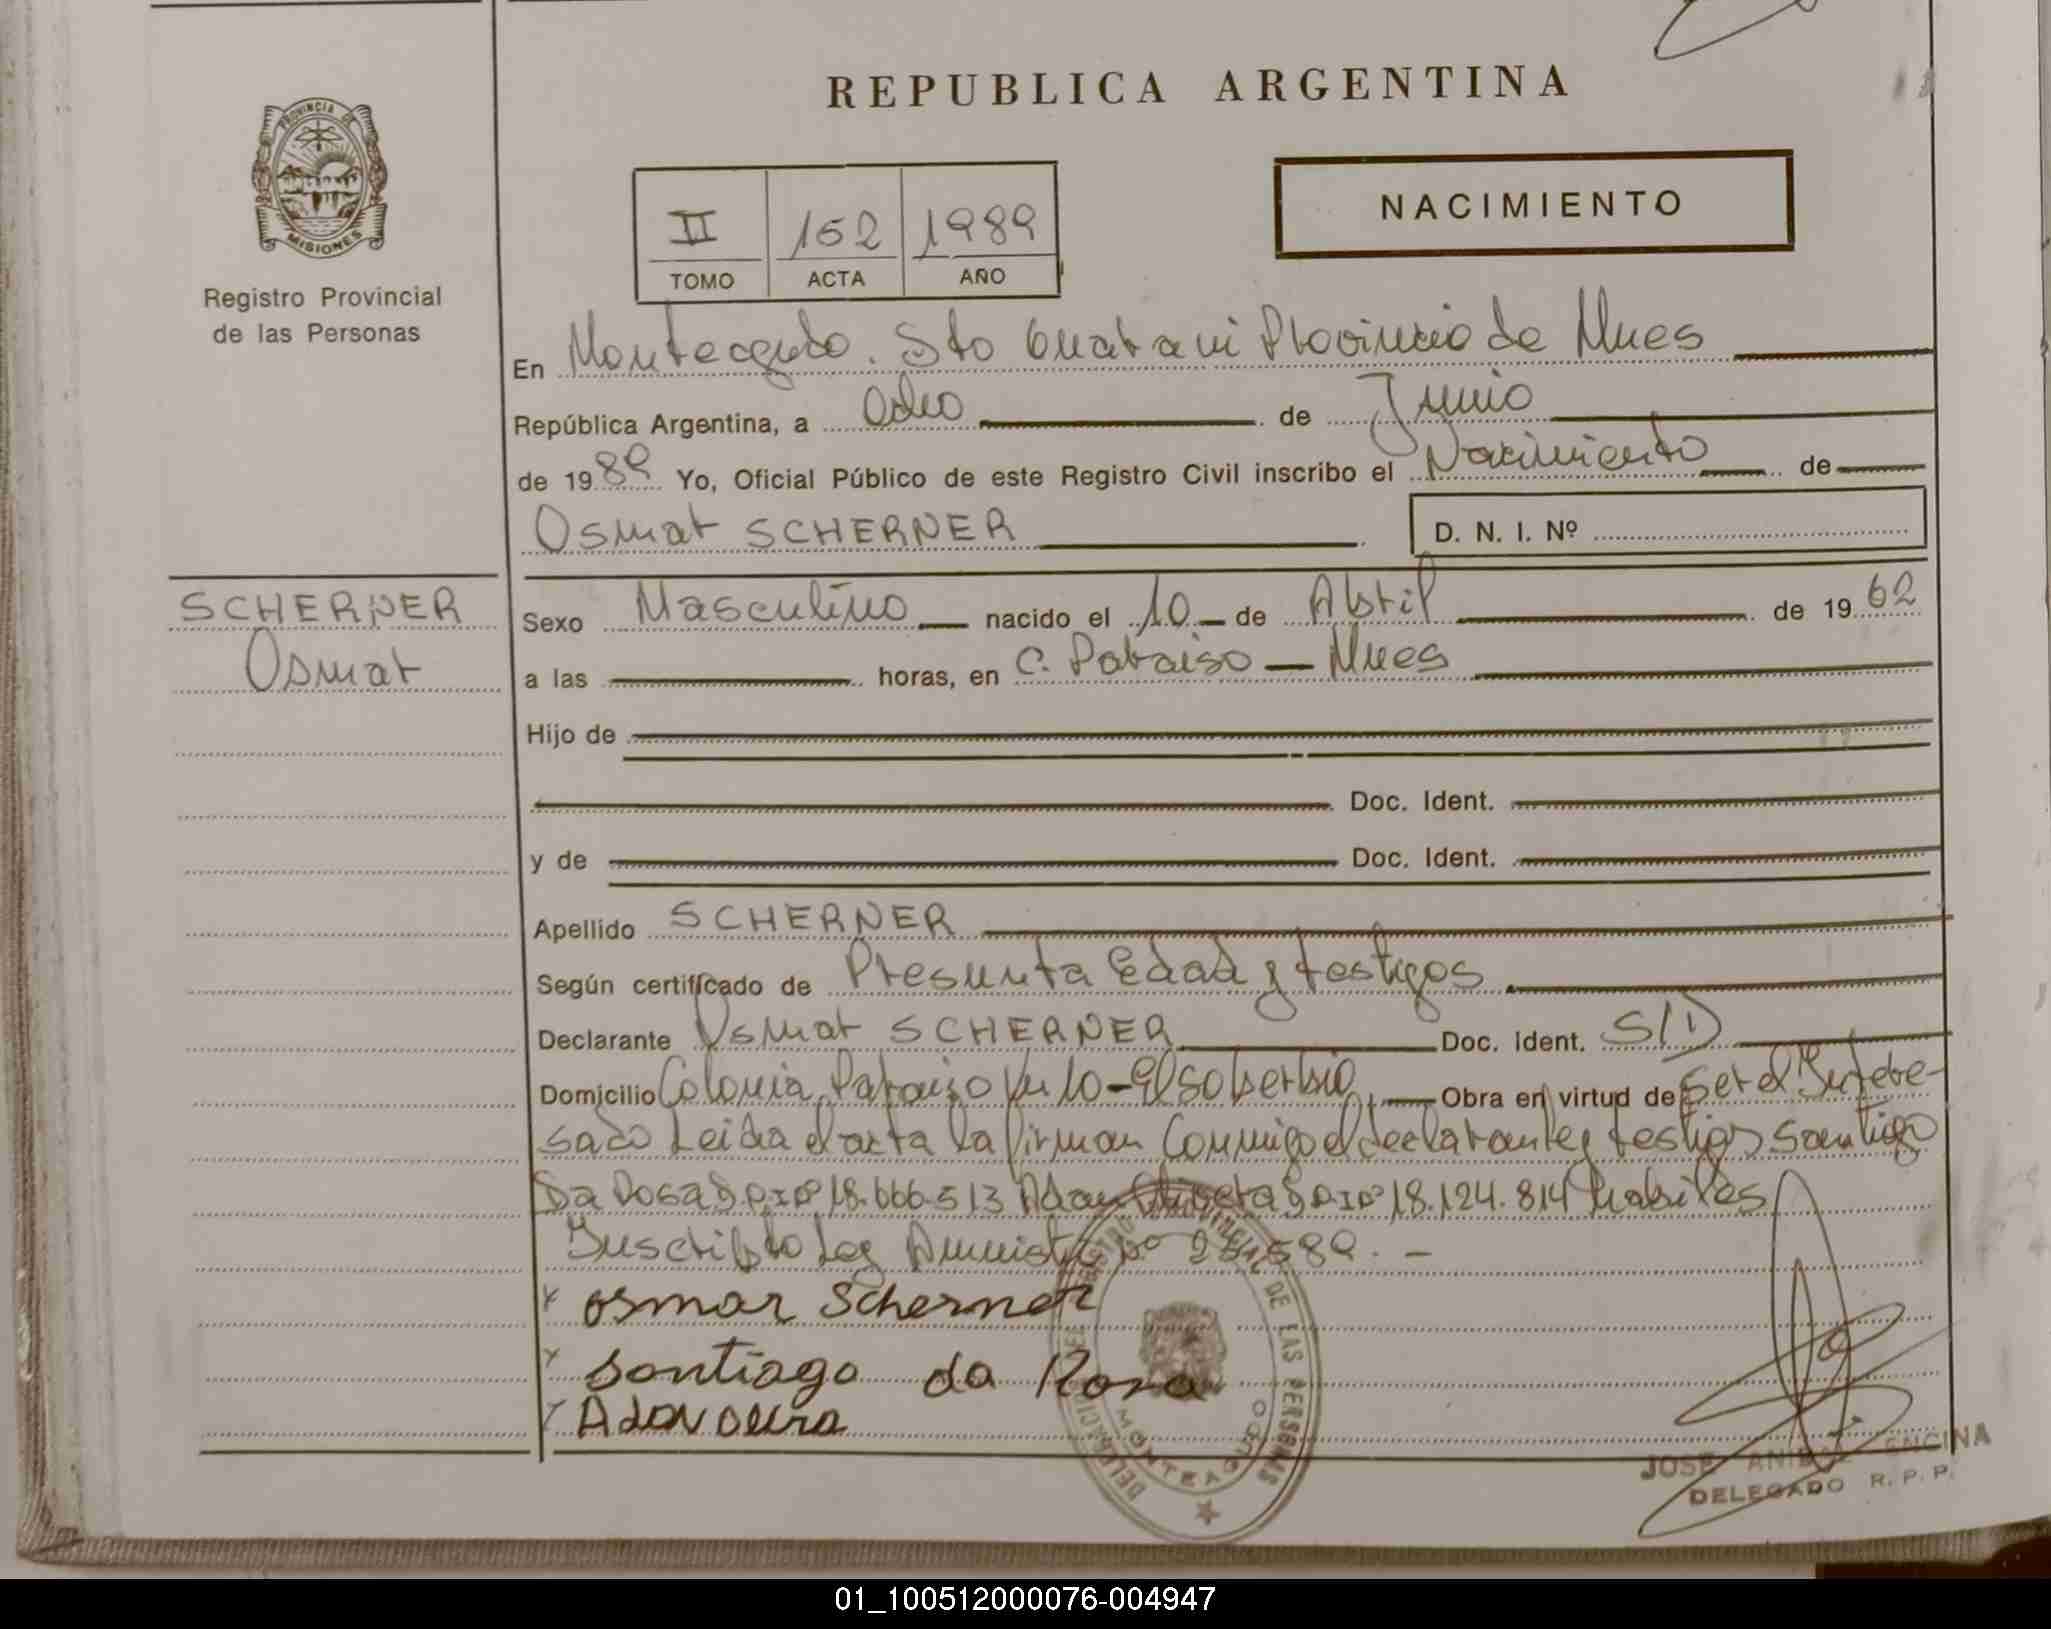 REPUBLICA ARGENTINA
PROVINCIA DE
MISIONES
Registro Provincial
de las Personas
II 152 1989
TOMO ACTA AÑO
NACIMIENTO
En Monteagudo. Gto Guarani Provincia de Mnes
República Argentina, a Ocho de Junio
de 1989 Yo, Oficial Público de este Registro Civil inscribo el Nacimiento de
Osmar SCHERNER D. N. I. Nº
SCHERNER
Osmar
Sexo Masculino nacido el 10 de Abril de 1962
a las horas, en C. Paraiso — Mnes
Hijo de
Doc. Ident.
y de Doc. Ident.
Apellido SCHERNER
Según certificado de Presunta Edad y testigos
Declarante Osmar SCHERNER Doc. Ident. S/D
Domicilio Colonia Paraiso Km 10 - El Soberbio Obra en virtud de Ser el Intere-
sado Leida el acta la firman Conmigo el declarante y testigos Santiago
Da Rosa D.N.I Nº 18.666.513 Adan D.N.I Nº 18.124.814 habiles
Inscripto Ley Amnistia Nº
x osmar Scherner
x Santiago da Rosa
x
DE LAS PERSONAS
MONTEAGUDO
JOSE ANIBAL ENCINA
DELEGADO R. P. P.
01_100512000076-004947